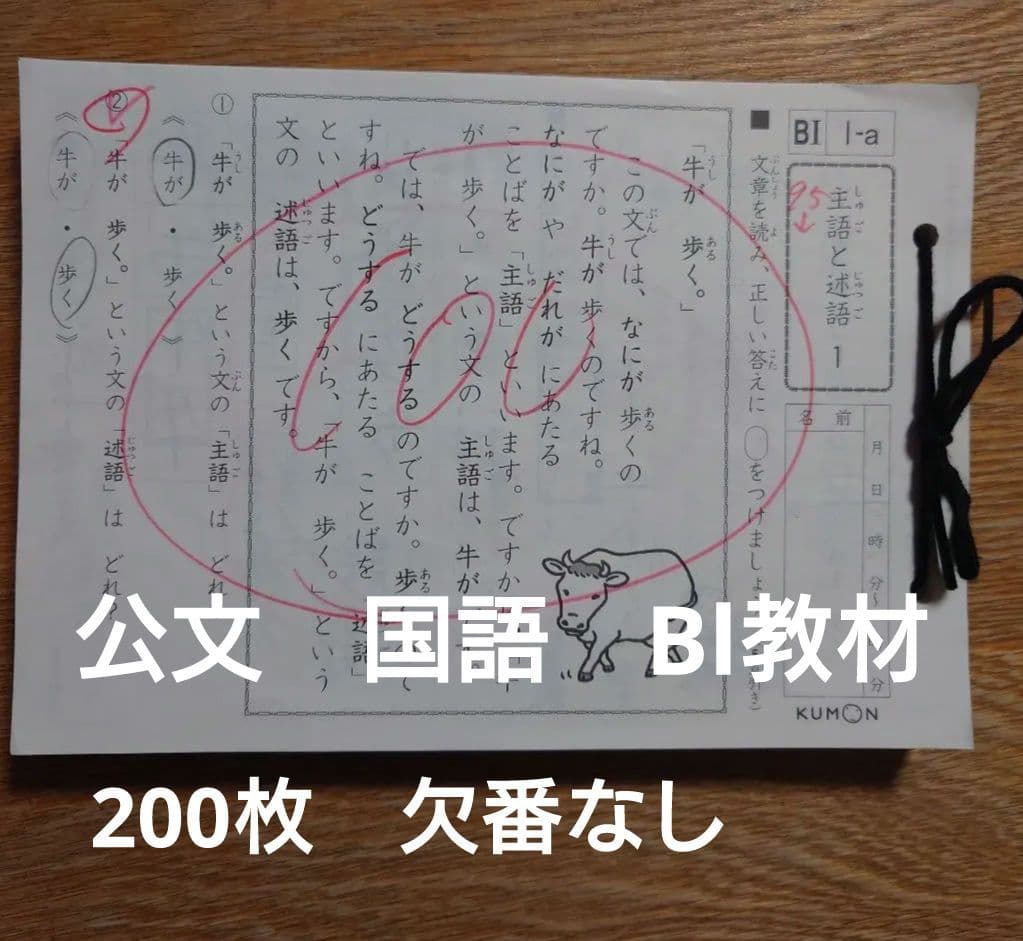 BI 1-a
主語と述語 1
しゅ ご じゅつ ご
95
名前
月 日
時 分〜
分
KUMON
■ 文章を読み、正しい答えに ○をつけましょ
「牛が 歩く。」
この文では、なにが 歩くの
ですか。牛が 歩くのですね。
なにが や だれが にあたる
ことばを 「主語」 といいます。ですか
が 歩く。」 という文の 主語は、牛が
では、牛が どうする のですか。歩
すね。どうする にあたる ことばを 「述語」
といいます。ですから、「牛が 歩く。」という
文の 述語は、歩く です。
100
① 「牛が 歩く。」 という 文の 「主語」 は どれ
《 牛が ・ 歩く 》
② 「牛が 歩く。」 という文の 「述語」は どれ?
《 牛が ・ 歩く 》
公文 国語 BI教材
200枚 欠番なし